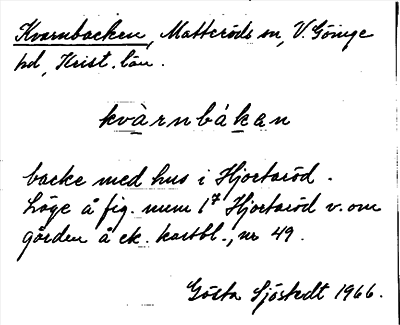 Kvarnbacken, Matteröds sn, V. Göinge
hd, Krist. län.
kvàrnbákan
backe med hus i Hjortaröd.
Läge å fig. mom 1⁷ Hjortaröd v. om
gården å ek. kartbl., nr 49.
Gösta Sjöstedt 1966.